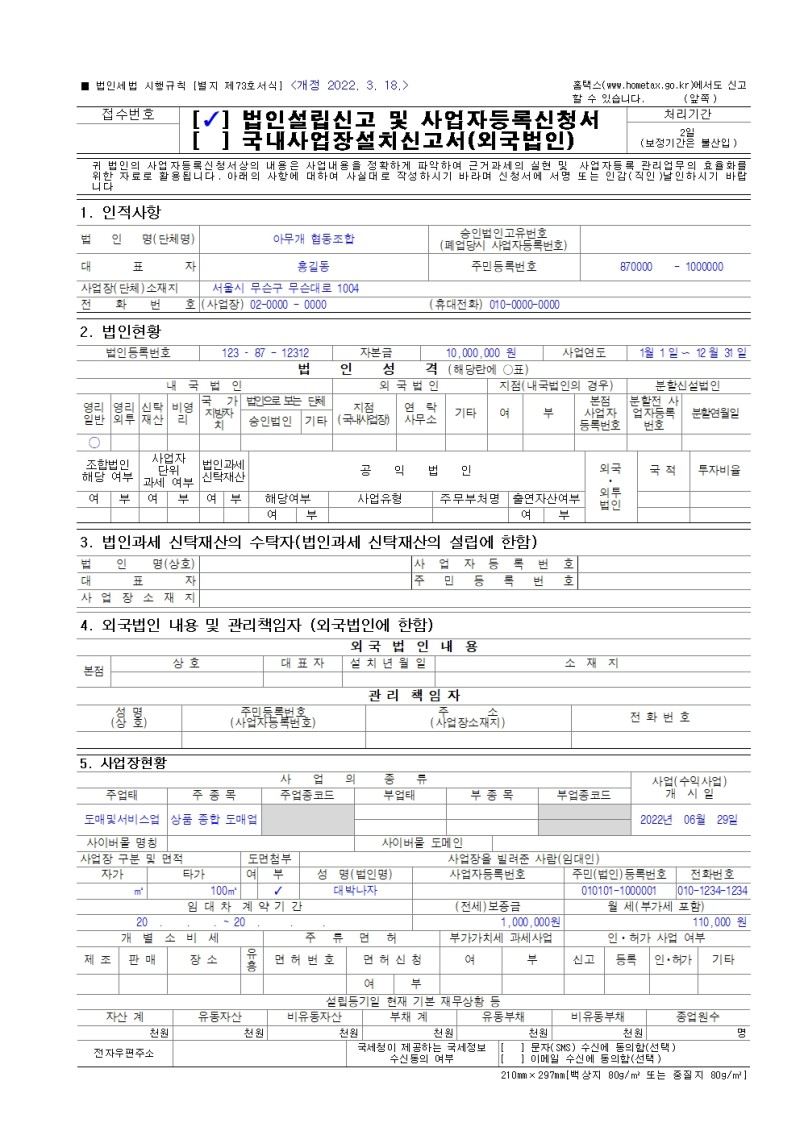 ■ 법인세법 시행규칙 [별지 제73호서식] <개정 2022. 3. 18.>
홈택스(www.hometax.go.kr)에서도 신고
할 수 있습니다. (앞쪽)
접수번호
[✓] 법인설립신고 및 사업자등록신청서
[ ] 국내사업장설치신고서(외국법인)
처리기간
2일
(보정기간은 불산입)
귀 법인의 사업자등록신청서상의 내용은 사업내용을 정확하게 파악하여 근거과세의 실현 및 사업자등록 관리업무의 효율화를
위한 자료로 활용됩니다. 아래의 사항에 대하여 사실대로 작성하시기 바라며 신청서에 서명 또는 인감(직인)날인하시기 바랍
니다
1. 인적사항
법 인 명(단체명) 아무개 협동조합 승인법인고유번호
(폐업당시 사업자등록번호)
대 표 자 홍길동 주민등록번호 870000 - 1000000
사업장(단체)소재지 서울시 무슨구 무슨대로 1004
전 화 번 호 (사업장) 02-0000 - 0000 (휴대전화) 010-0000-0000
2. 법인현황
법인등록번호 123 - 87 - 12312 자본금 10,000,000 원 사업연도 1월 1일 ~ 12월 31일
법 인 성 격 (해당란에 ○표)
내 국 법 인 외 국 법 인 지점(내국법인의 경우) 분할신설법인
영리
일반
영리
외투
신탁
재산
비영
리
국 가
지방자
치
법인으로 보는 단체
승인법인 기타
지점
(국내사업장)
연 락
사무소
기타
여 부
본점
사업자
등록번호
분할전 사
업자등록
번호
분할연월일
○
조합법인
해당 여부
사업자
단위
과세 여부
법인과세
신탁재산
공 익 법 인
외국
·
외투
법인
국 적 투자비율
여 부 여 부 여 부 해당여부 사업유형 주무부처명 출연자산여부
여 부 여 부
3. 법인과세 신탁재산의 수탁자(법인과세 신탁재산의 설립에 한함)
법 인 명(상호) 사 업 자 등 록 번 호
대 표 자 주 민 등 록 번 호
사 업 장 소 재 지
4. 외국법인 내용 및 관리책임자 (외국법인에 한함)
외 국 법 인 내 용
본점 상 호 대 표 자 설 치 년 월 일 소 재 지
관 리 책 임 자
성 명
(상 호)
주민등록번호
(사업자등록번호)
주 소
(사업장소재지)
전 화 번 호
5. 사업장현황
사 업 의 종 류 사업(수익사업)
개 시 일
주업태 주 종 목 주업종코드 부업태 부 종 목 부업종코드
도매및서비스업 상품 종합 도매업 2022년 06월 29일
사이버몰 명칭 사이버몰 도메인
사업장 구분 및 면적 도면첨부 사업장을 빌려준 사람(임대인)
자가 타가 여 부 성 명(법인명) 사업자등록번호 주민(법인)등록번호 전화번호
㎡ 100㎡ ✓ 대박나자 010101-1000001 010-1234-1234
임 대 차 계 약 기 간 (전세)보증금 월 세(부가세 포함)
20 . . . ~ 20 . . . 1,000,000원 110,000 원
개 별 소 비 세 주 류 면 허 부가가치세 과세사업 인·허가 사업 여부
제 조 판 매 장 소 유
흥
면 허 번 호 면 허 신 청 여 부 신고 등록 인·허가 기타
여 부
설립등기일 현재 기본 재무상황 등
자산 계 유동자산 비유동자산 부채 계 유동부채 비유동부채 종업원수
천원 천원 천원 천원 천원 천원 명
전자우편주소
국세청이 제공하는 국세정보
수신동의 여부
[ ] 문자(SMS) 수신에 동의함(선택)
[ ] 이메일 수신에 동의함(선택)
210㎜×297㎜[백상지 80g/㎡ 또는 중질지 80g/㎡]